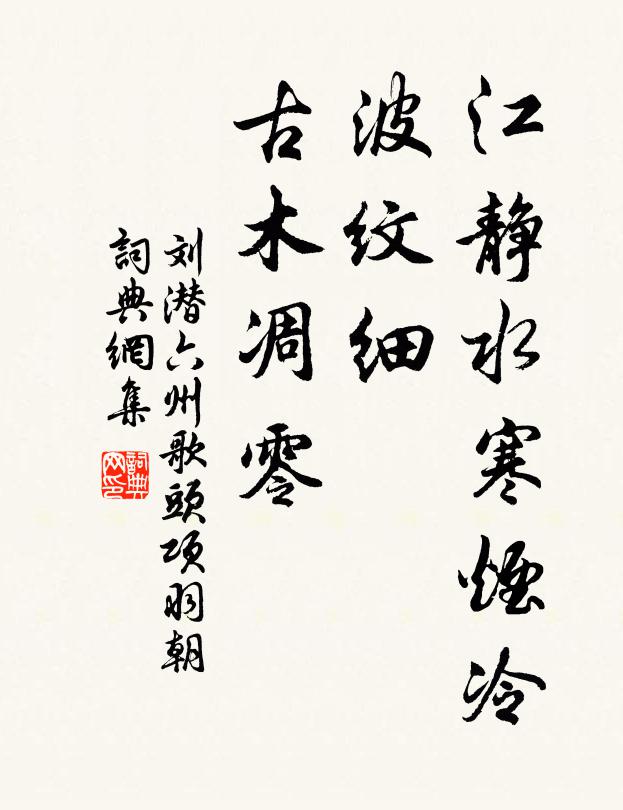 江静水寒煙冷
波纹细
古木凋零
刘潜六州歌頭項羽朝
詞典網集
詞典网印